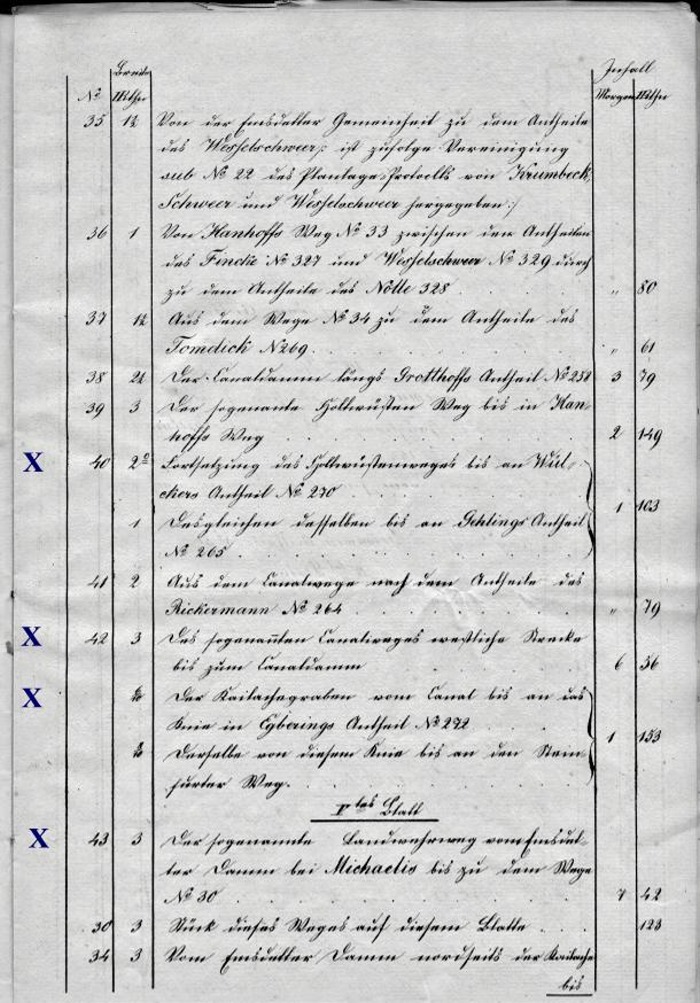 Breite Inhalt
No Rthn Morgen Rthn
35 1½ Von der Emsdetter Gemeinheit zu dem Antheile
des Wesselschweer /: ist zufolge Vereinigung
sub No 22 des Plantage-Protocolls von Krumbeck,
Schweer und Wesselschweer hergegeben :/
36 1 Von Hanhoffs Weg No 33 zwischen den Antheilen
des Fincke No 327 und Wesselschweer No 329 durch
zu dem Antheile des Nölte 328 . . . " 80
37 1½ Aus dem Wege No 34 zu dem Antheile des
Tomdick No 269 . . . " 61
38 2½ Der Canaldamm längs Grotthoffs Antheil No 258 3 79
39 3 Der sogenante Holtwüsten Weg bis in Han-
hoffs Weg . . . 2 149
X 40 2 Fortsetzung des Holtwüstenweges bis an Wül-
ckers Antheil No 270 . . .
1 103
1 Desgleichen desselben bis an Gehlings Antheil
No 265 . . .
41 2 Aus dem Canalwege nach dem Antheile des
Rickermann No 264 . . . " 79
X 42 3 Des sogenannten Canalweges westliche Strecke
bis zum Canaldamm . . . 6 56
X Der Kailachegraben vom Canal bis an das
Knie in Eyberings Antheil No 272
1 153
Derselbe von diesem Knie bis an den Stein-
furter Weg. . . .
Vtes Blatt
X 43 3 Der sogenannte Landwehrweg vom Emsdet-
ter Damm bei Michaelis bis zu dem Wege
No 30 . . . 7 42
30 3 Stück dieses Weges auf diesem Blatte . . . 123
34 3 Vom Emsdetter Damm nordseits der Kailache
bis